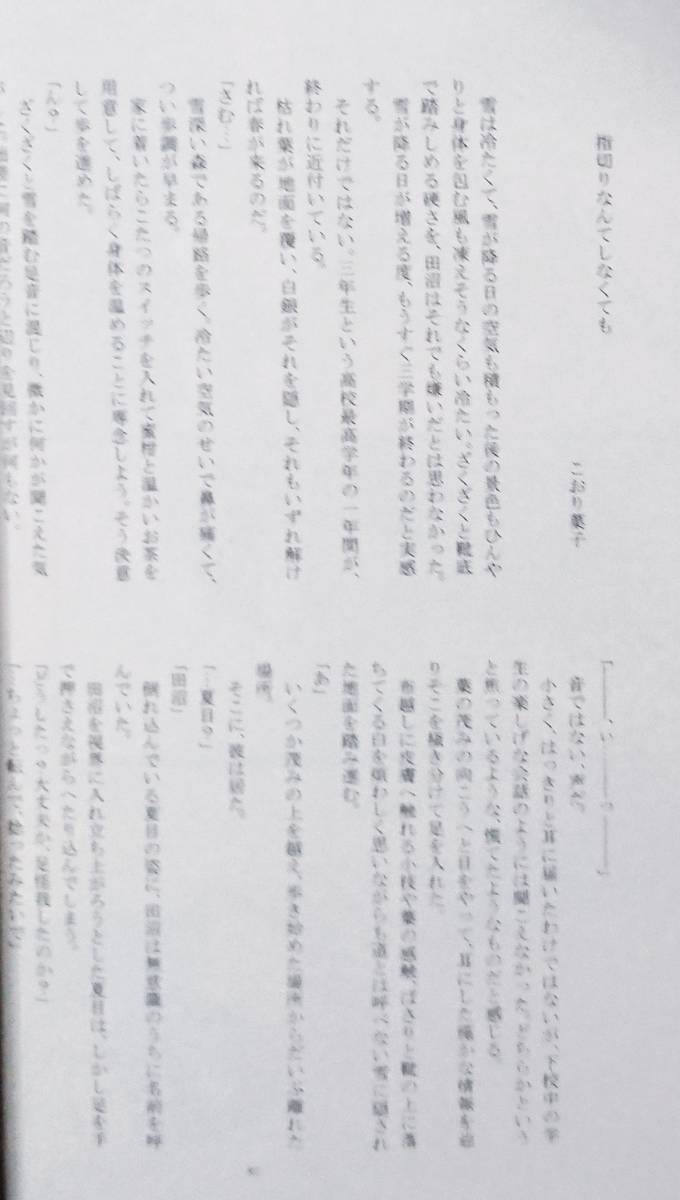 指切りなんてしなくても
こおり菓子
雪は冷たくて、雪が降る日の空気も積もった後の景色もひんや
りと身体を包む風も凍えそうなくらい冷たい。ざくざくと靴底
で踏みしめる硬さを、田沼はそれでも嫌いだとは思わなかった。
雪が降る日が増える度、もうすぐ三学期が終わるのだと実感
する。
それだけではない。三年生という高校最高学年の一年間が、
終わりに近付いている。
枯れ葉が地面を覆い、白銀がそれを隠し、それもいずれ解け
れば春が来るのだ。
「さむ…」
雪深い森である帰路を歩く。冷たい空気のせいで鼻が痛くて、
つい歩調が早まる。
家に着いたらこたつのスイッチを入れて蜜柑と温かいお茶を
用意して、しばらく身体を温めることに専念しよう。そう決意
して歩を進めた。
「ん？」
ざくざくと雪を踏む足音に混じり、微かに何かが聞こえた気
何の音だろうと辺りを見回すが何もない。
「―――、い―――っ、―――」
音ではない、声だ。
小さく、はっきりと耳に届いたわけではないが、下校中の学
生の楽しげな会話のようには聞こえなかった。どちらかという
と焦っているような、慌てたようなものだと感じる。
葉の茂みの向こうへと目をやって、耳にした微かな情報を追
りそこを掻き分けて足を入れた。
布越しに皮膚へ触れる小枝や葉の感触、ばさりと靴の上に落
ちてくる白を煩わしく思いながらも道とは呼べない雪に隠され
た地面を踏み進む。
「あ」
いくつか茂みの上を越え、歩き始めた場所からだいぶ離れた
場所。
そこに、彼は居た。
「…夏目？」
「田沼」
倒れ込んでいる夏目の姿に、田沼は無意識のうちに名前を呼
んでいた。
田沼を視界に入れ立ち上がろうとした夏目は、しかし足を手
で押さえながらへたり込んでしまう。
「どうした？大丈夫か、足怪我したのか？」
「ちょっと転んで、捻ったみたいで」